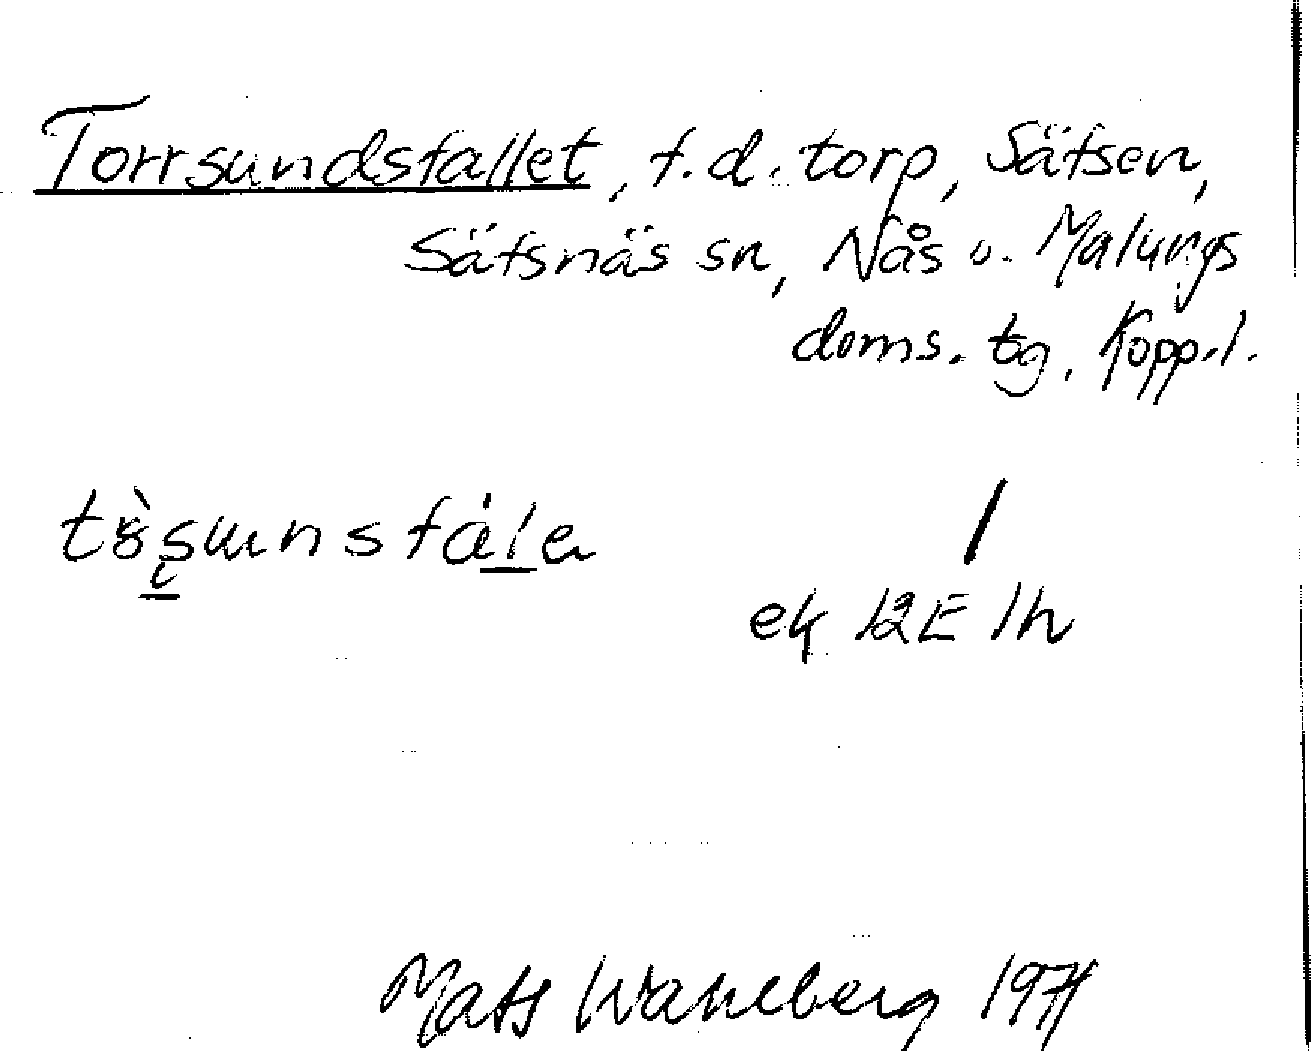 Torrsundsfallet, f.d. torp, Säfsen,
Säfsnäs sn, Nås o. Malungs
doms. tg, Kopp. l.
ek 12E 1h
Mats Wahlberg 1971